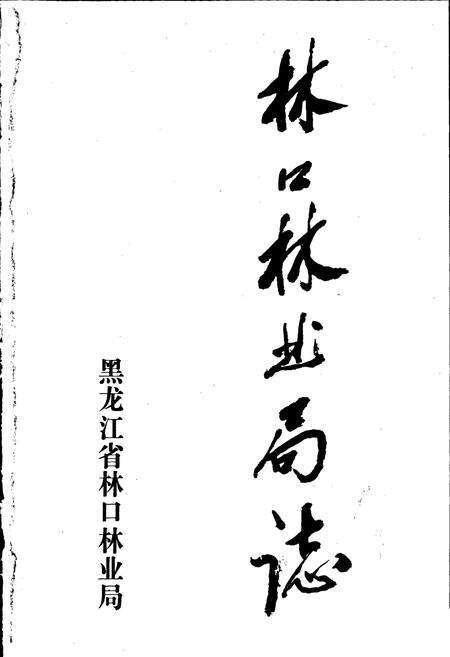 林口林业局誌
黑龙江省林口林业局